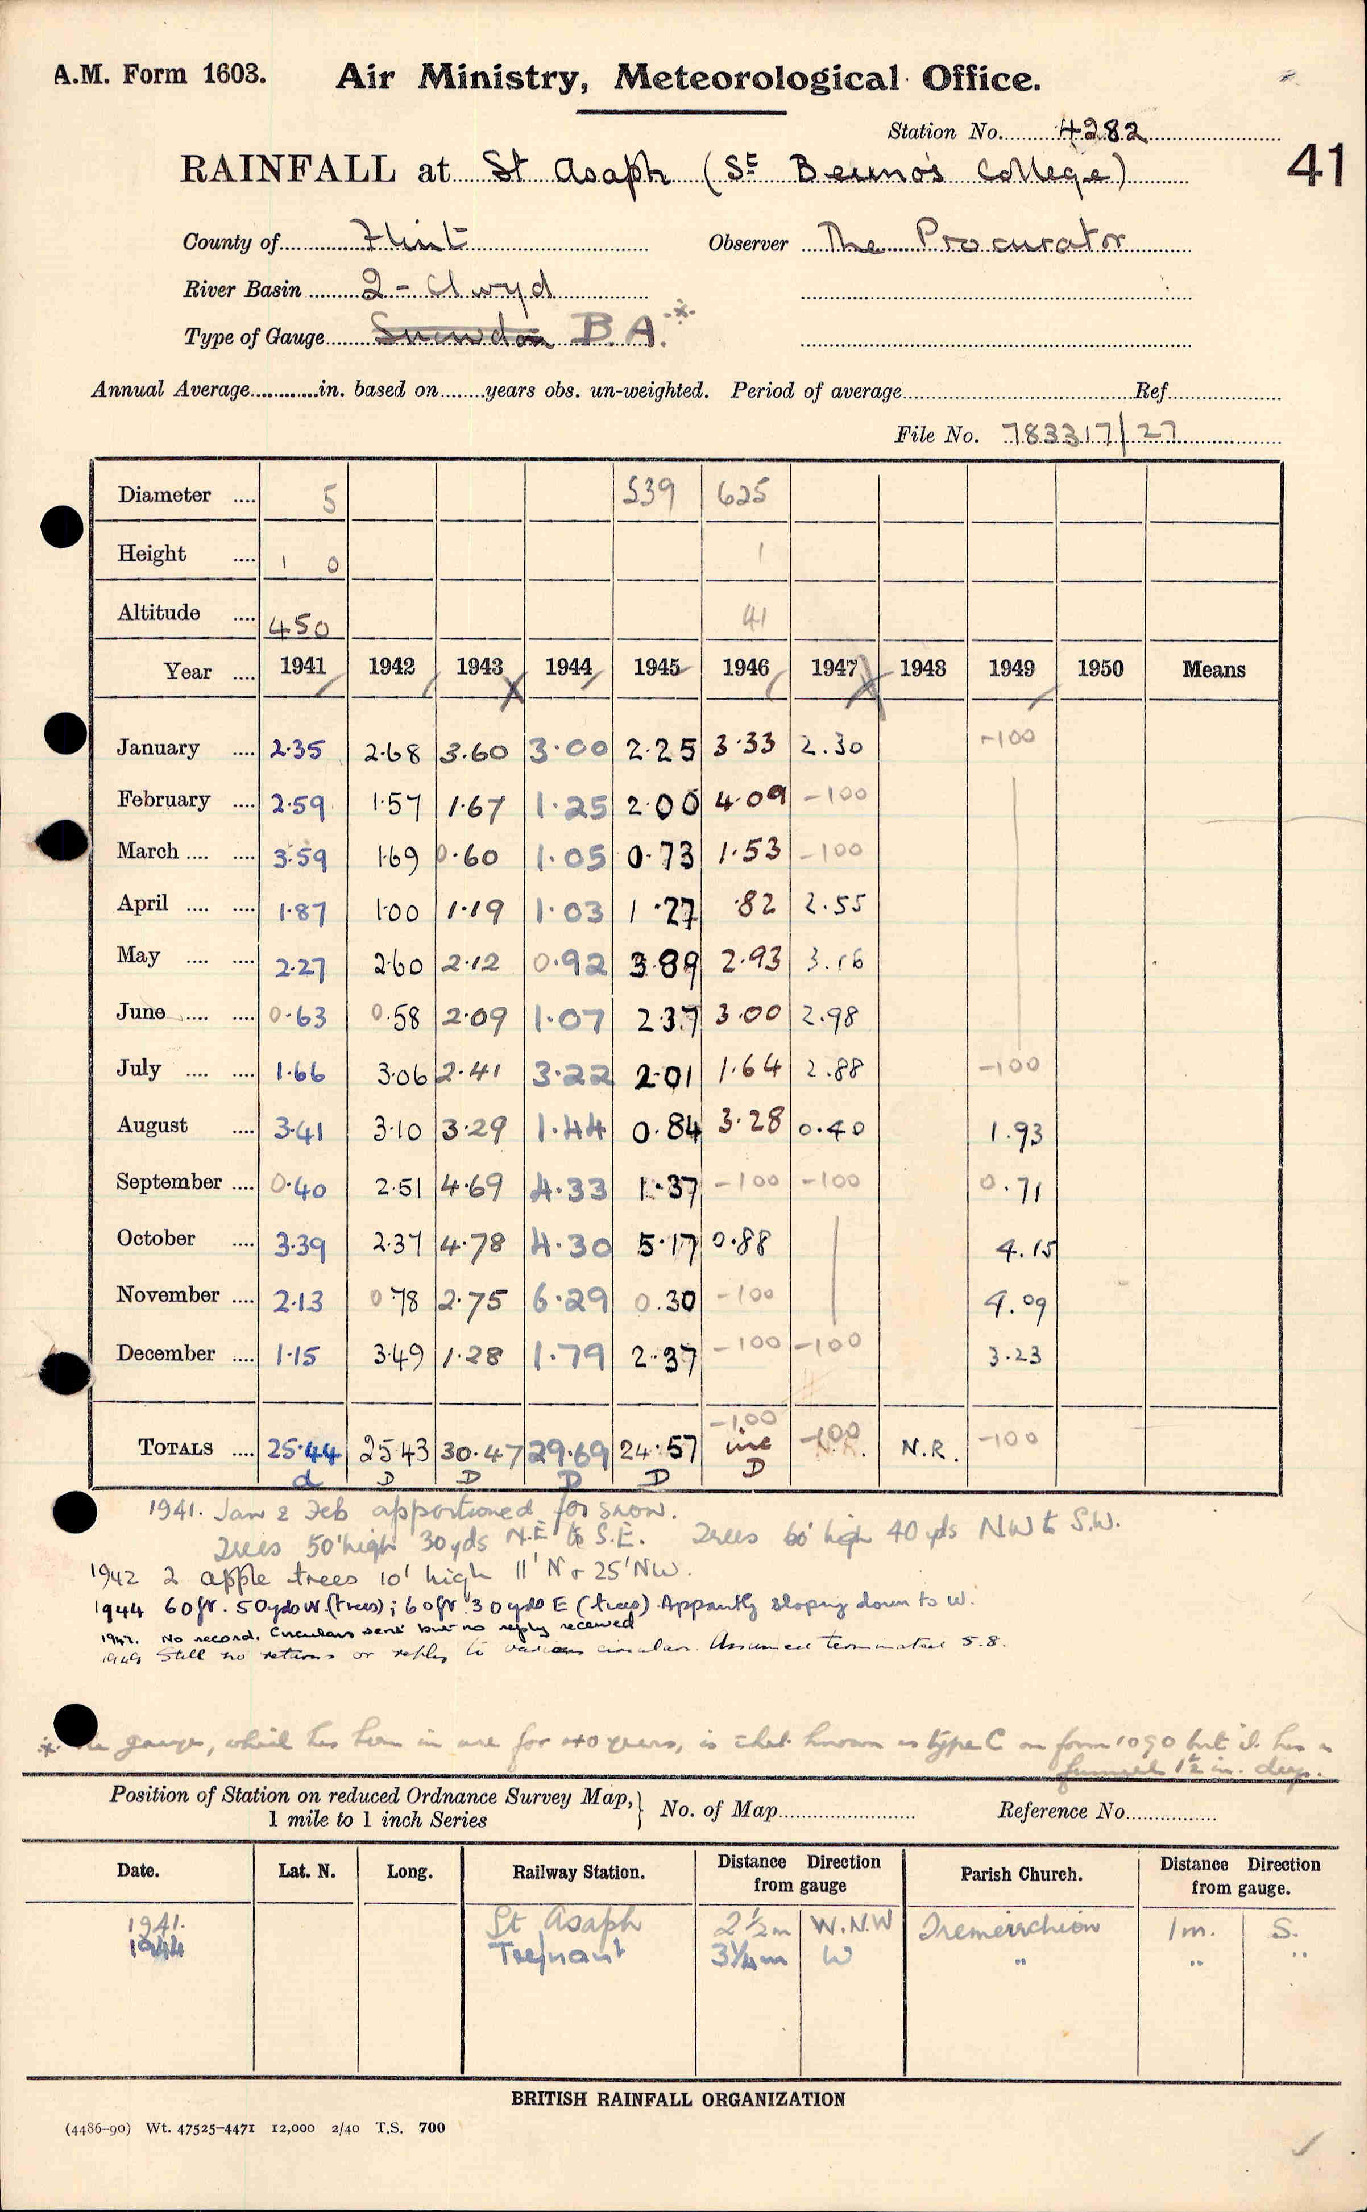 A.M. Form 1603. Air Ministry, Meteorological Office.
Station No. 4282
41
RAINFALL at St Asaph (St Beuno's College)
County of Flint Observer The Procurator
River Basin 2 - Clwyd
Type of Gauge Snowdon B.A.*
Annual Average in. based on years obs. un-weighted. Period of average Ref
File No. 783317/27
Diameter 5 539 625
Height 1 0 1
Altitude 450 41
Year 1941 1942 1943 1944 1945 1946 1947 1948 1949 1950 Means
January 2.35 2.68 3.60 3.00 2.25 3.33 2.30 -100
February 2.59 1.57 1.67 1.25 2.00 4.09 -100
March 3.59 1.69 0.60 1.05 0.73 1.53 -100
April 1.87 1.00 1.19 1.03 1.27 .82 2.55
May 2.27 2.60 2.12 0.92 3.89 2.93 3.16
June 0.63 0.58 2.09 1.07 2.37 3.00 2.98
July 1.66 3.06 2.41 3.22 2.01 1.64 2.88 -100
August 3.41 3.10 3.29 1.44 0.84 3.28 0.40 1.93
September 0.40 2.51 4.69 4.33 1.37 -100 -100 0.71
October 3.39 2.37 4.78 4.30 5.17 0.88 4.15
November 2.13 0.78 2.75 6.29 0.30 -100 4.09
December 1.15 3.49 1.28 1.79 2.37 -100 -100 3.23
TOTALS 25.44 25.43 30.47 29.69 24.57 -100 -100 N.R. -100
inc N.R.
d D D D D D
1941. Jan & Feb apportioned for snow.
Trees 50' high 30yds N.E to S.E. Trees 60' high 40 yds NW to S.W.
1942 2 apple trees 10' high 11' N & 25' NW.
1944 60ft. 50yds W. (trees); 60ft 30yds E (trees). Appantly sloping down to W.
1947. No record. Circulars sent but no reply received
1949 Still no returns or reply to various circulars. Assumed terminated S.8.
* The gauge, which has been in use for 40 years, is that known as type C on form 1090 but it has a
funnel 1½ in. deep.
Position of Station on reduced Ordnance Survey Map, 1 mile to 1 inch Series } No. of Map Reference No.
Date. Lat. N. Long. Railway Station. Distance Direction from gauge Parish Church. Distance Direction from gauge.
1941. St Asaph 2½m W.N.W Tremeirchion 1m. S.
1944 Trefnant 3¼m W " " "
BRITISH RAINFALL ORGANIZATION
(4486-90) Wt. 47525-4471 12,000 2/40 T.S. 700